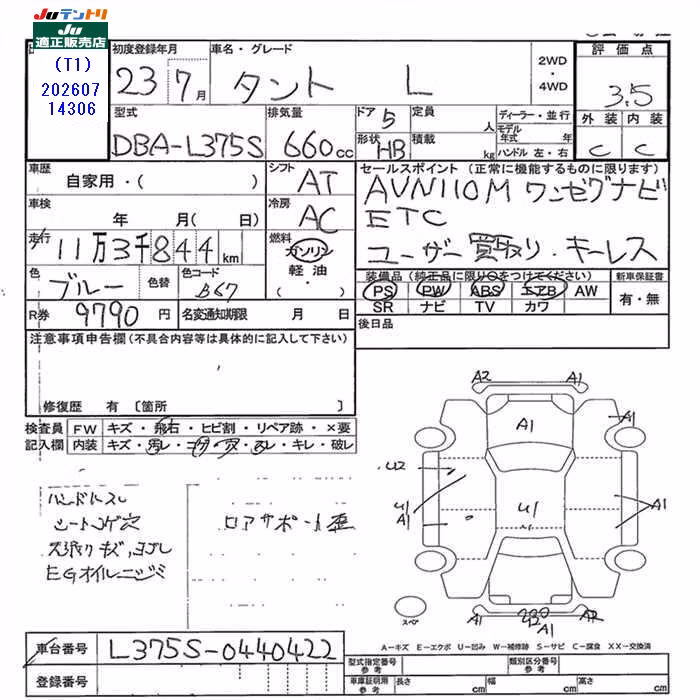 JUテントリ
JU
適正販売店
(T1)
202607
14306
初度登録年月
車名・グレード
23 7月
タント L
2WD
・
4WD
評価点
3.5
外装 内装
C C
型式
DBA-L375S
排気量
660cc
ドア 5
形状 HB
定員 人
積載 kg
ディーラー・並行
モデル年式 年
ハンドル 左・右
車歴
自家用・( )
シフト
AT
セールスポイント(正常に機能するものに限ります)
AVN110M ワンセグナビ
ETC
ユーザー買取り・キーレス
車検
年 月( 日)
冷房
AC
走行
11万3千844km
燃料
ガソリン
軽油
・( )
色
ブルー
色替
色コード
B67
装備品(純正品に限り○をつけてください)
PS PW ABS エアB AW
SR ナビ TV カワ
新車保証書
有・無
R券
9790円
名変通知期限 月 日
後日品
注意事項申告欄(不具合内容等は具体的に記入して下さい)
修復歴 有〔箇所 〕
検査員
記入欄
FW キズ・飛石・ヒビ割・リペア跡・×要
内装 キズ・汚レ・コゲ・穴・スレ・キレ・破レ
ハンドルスレ
シートコゲ穴
天張りキズ、ヨゴレ
EGオイルニジミ
ロアサポート歪
A2 A1
A1
A1
U2
U1
A1
U1
A1
スペア
A1 U2 A1 A2
A-キズ E-エクボ U-凹み W-補修跡 S-サビ C-腐食 XX-交換済
車台番号
L375S-0440422
登録番号
型式指定番号
参考
類別区分番号
参考
車庫証明用
参考
長さ cm
幅 cm
高さ cm